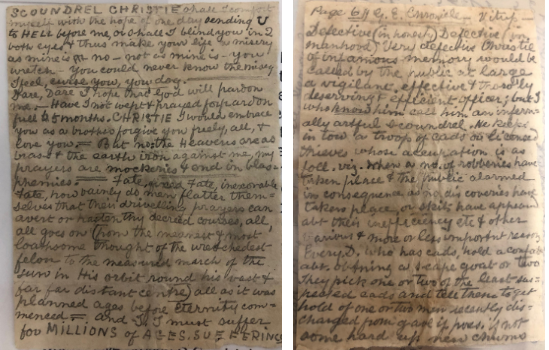 SCOUNDREL CHRISTIE shall I comfort
myself with the hope of one day sending U
to HELL before me, or shall I blind you in 2
both eyes & thus make your life as misery
as mine is no – not as mine is – you
wretch – You could never know the misery
I feel, curse you, you dog.
Hare, Dare I hope that God will pardon
me – Have I not wept & prayed for pardon
full 25 months. CHRISTIE I would embrace
you as a brother forgive you freely, all, &
love you. – But no the Heavens are as
brass & the earth iron against me, my
prayers are mockeries & end in blas-
phemies. Fate, Fate, inexorable
Fate, how vainly do every flatter them-
selves that their drivelling prayers can
avert or hasten thy decreed courses, all,
all goes on (from the meanest & most
loathsome thought of the wretchedest
felon to the measured march of the
sun in His orbit round his vast &
far far distant centre) all as it was
planned ages before Eternity com-
menced – and I, I must suffer
for MILLIONS of AGES. SUFFERING
Page 6
Defective (in honesty) Defective (in
manhood) Very defective Christie
of infamous memory would be
called by the public at large
a vigilant, effective & thoroly
deserving & efficient officer; but I
who knew him call him an infern-
ally artful scoundrel. He keeps
in tow a troop of cads or licensed
thieves whose occupation is as
foll. viz. when a no. of robberies have
taken place & the public alarmed
in consequence as no discoveries have
taken place, or articles have appeared
abt their inefficiency etc & other
various & more or less important reasons
Every D. who has cads, hold a confab
abt. obtaining a scape goat or two
they pick one or two of the least sus-
pected cads and tell them to get
hold of one or two men recently dis-
charged from gaol if poss. if not
some hard up new chums